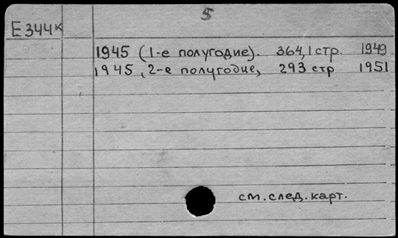 5
Е344к
1945 (1-е полугодие). 364,1 стр. 1949
1945, 2-е полугодие, 293 стр 1951
см. след. карт.